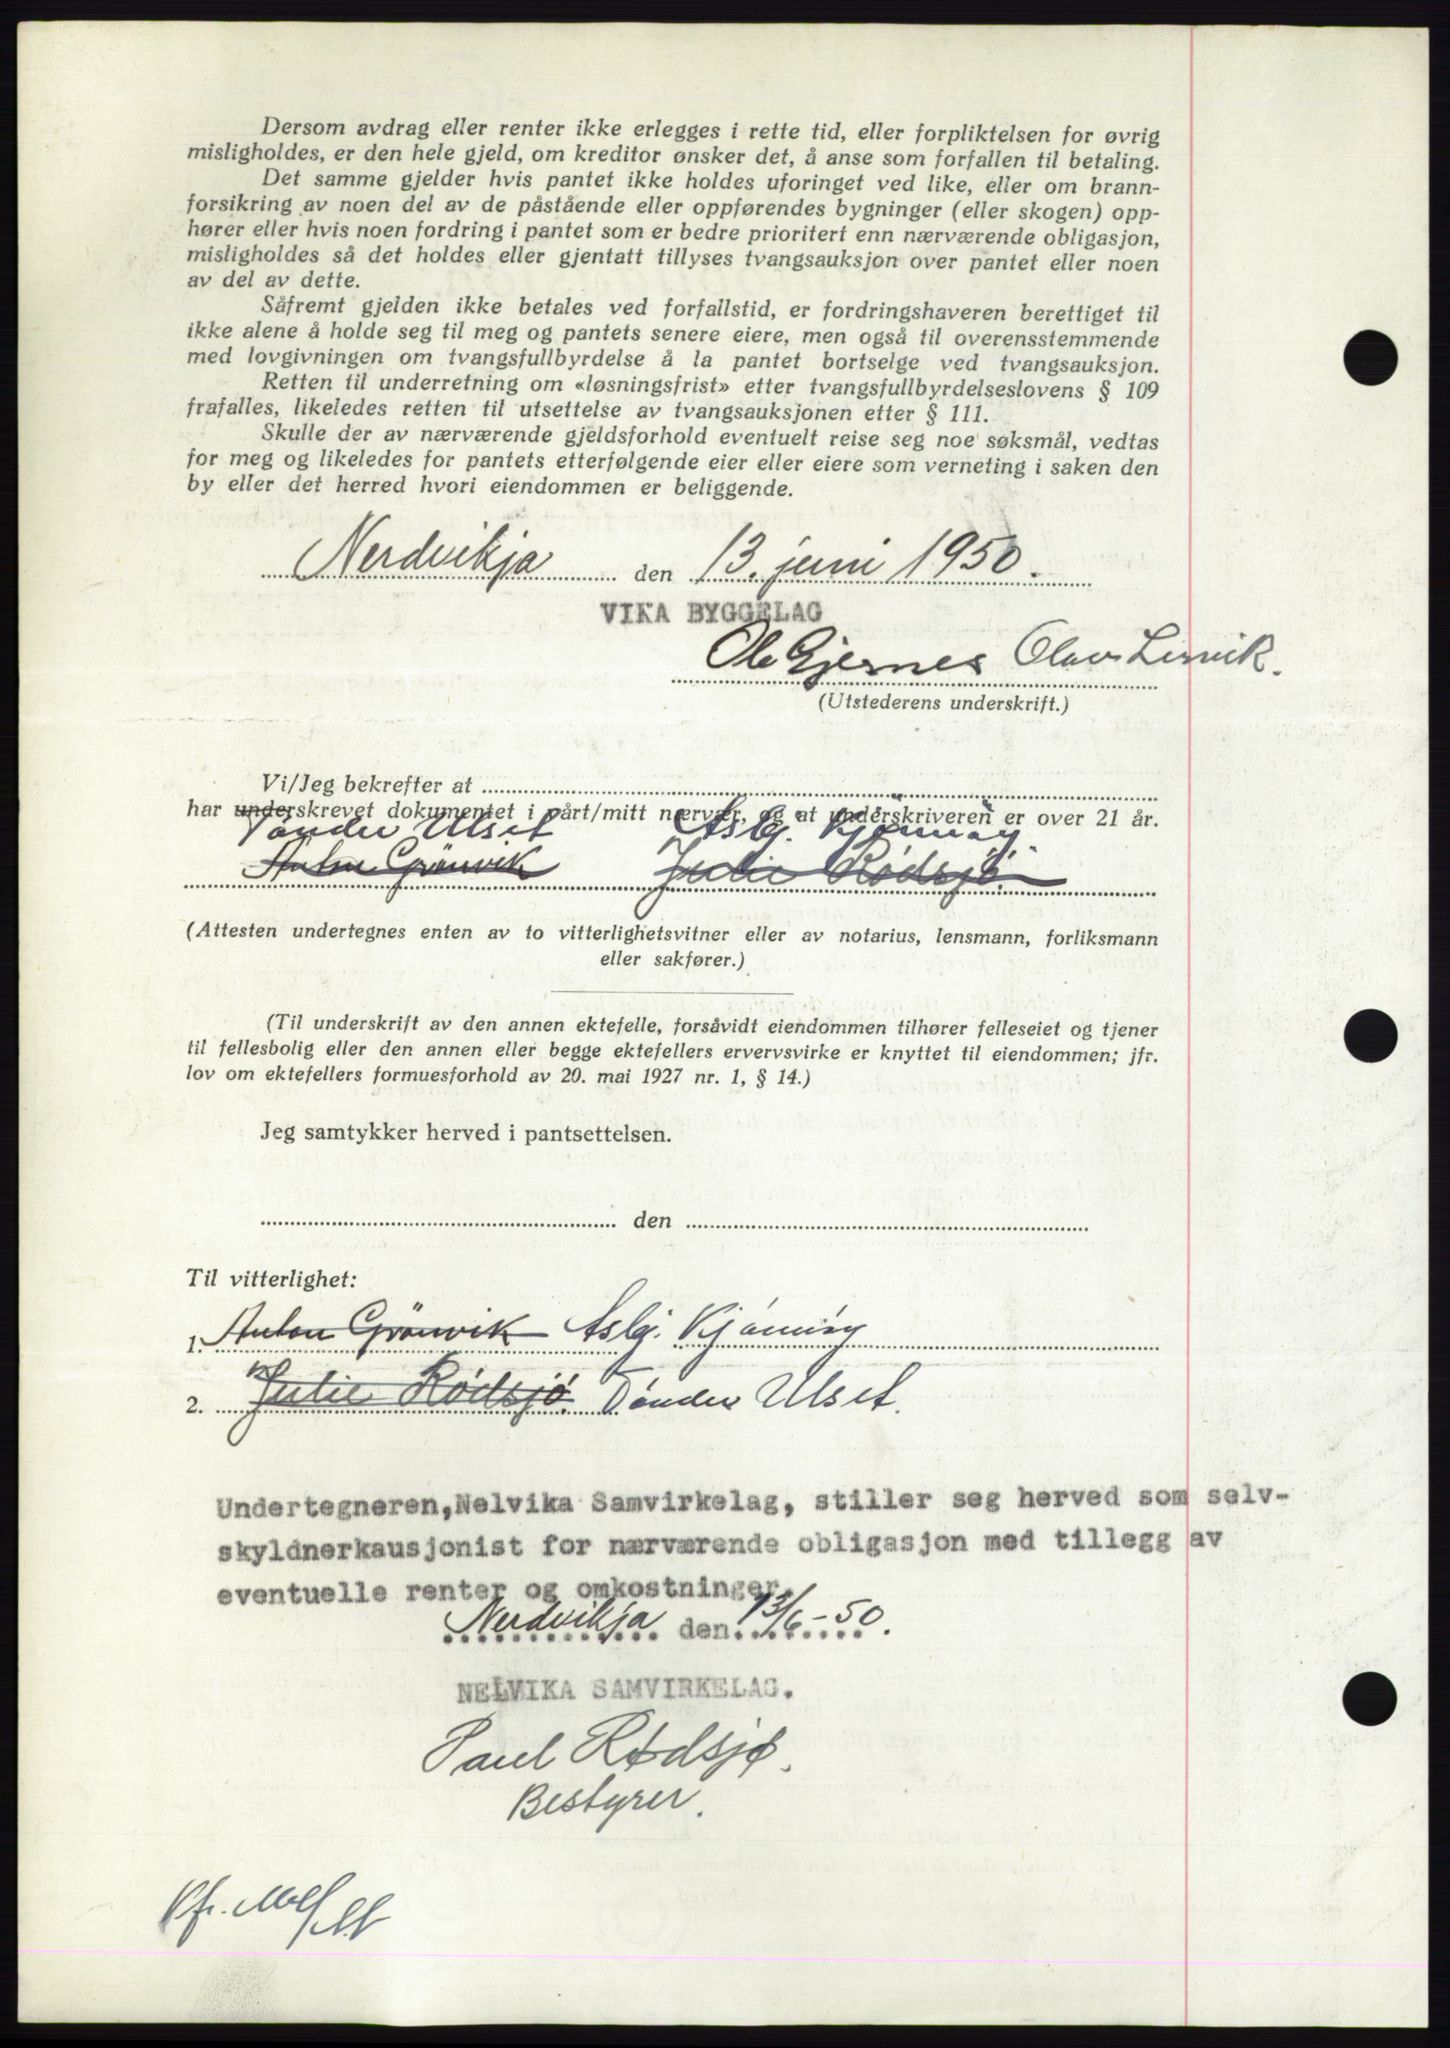 Dersom avdrag eller renter ikke erlegges i rette tid, eller forpliktelsen for øvrig
misligholdes, er den hele gjeld, om kreditor ønsker det, å anse som forfallen til betaling.
Det samme gjelder hvis pantet ikke holdes uforinget ved like, eller om brann-
forsikring av noen del av de påstående eller oppførendes bygninger (eller skogen) opp-
hører eller hvis noen fordring i pantet som er bedre prioritert enn nærværende obligasjon,
misligholdes så det holdes eller gjentatt tillyses tvangsauksjon over pantet eller noen
av del av dette.
Såfremt gjelden ikke betales ved forfallstid, er fordringshaveren berettiget til
ikke alene å holde seg til meg og pantets senere eiere, men også til overensstemmende
med lovgivningen om tvangsfullbyrdelse å la pantet bortselge ved tvangsauksjon.
Retten til underretning om «løsningsfrist» etter tvangsfullbyrdelseslovens § 109
frafalles, likeledes retten til utsettelse av tvangsauksjonen etter § 111.
Skulle der av nærværende gjeldsforhold eventuelt reise seg noe søksmål, vedtas
for meg og likeledes for pantets etterfølgende eier eller eiere som verneting i saken den
by eller det herred hvori eiendommen er beliggende.
Nerdvikja den 13. juni 1950.
VIKA BYGGELAG
Ole Gjernes Olav Lervik.
(Utstederens underskrift.)
Vi/Jeg bekrefter at
har underskrevet dokumentet i vårt/mitt nærvær, og at underskriveren er over 21 år.
Tönder Ulset Asbj. Kjönnöy
Anton Grönvik Julie Rödsjö
(Attesten undertegnes enten av to vitterlighetsvitner eller av notarius, lensmann, forliksmann
eller sakfører.)
(Til underskrift av den annen ektefelle, forsåvidt eiendommen tilhører felleseiet og tjener
til fellesbolig eller den annen eller begge ektefellers ervervsvirke er knyttet til eiendommen; jfr.
lov om ektefellers formuesforhold av 20. mai 1927 nr. 1, § 14.)
Jeg samtykker herved i pantsettelsen.
den
Til vitterlighet:
1. Anton Grönvik Asbj. Kjönnöy
2. Julie Rödsjö. Tönder Ulset.
Undertegneren, Nelvika Samvirkelag, stiller seg herved som selv-
skyldnerkausjonist for nærværende obligasjon med tillegg av
eventuelle renter og omkostninger.
Nerdvikja den 13/6-50.
NELVIKA SAMVIRKELAG.
Paul Rødsjø.
Bestyrer.